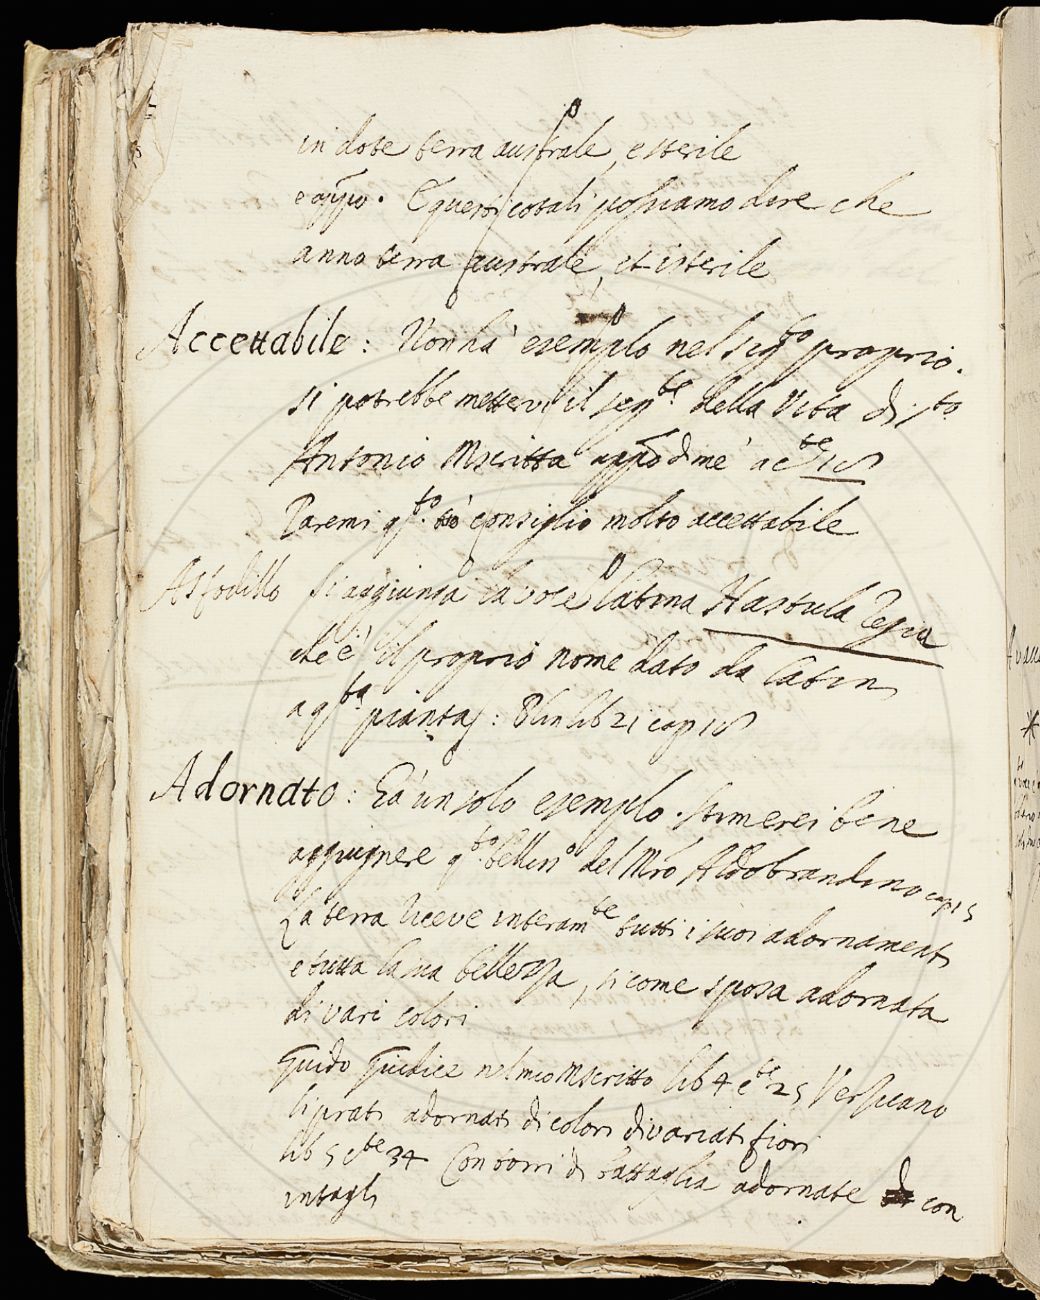 in dote terra australe, e sterile
e appo. E questi cotali possiamo dire che
anno terra australe, et isterile
Accettabile: Non ha' esemplo nel sigto proprio.
si potrebbe mettervi il segte della Vita di sto
Antonio Mscritta appo di me a cte 18
Paremi qto tò consiglio molto accettabile
Asfodillo Si aggiunga la voce latina Hastula Regia
che è il proprio nome dato da latini
a qta pianta: Plin lib 21 cap 18
Adornato: Ea' un solo esemplo. stimerei bene
aggiugnere qto bellino del Mro Aldobrandino cap 15
La terra riceve interamte tutti i suoi adornamenti
e tutta la sua bellezza, sicome sposa adornata
di vari colori
Guido Giudice nel mio Mscritto lib 4 cte 25 Verzicano
li prati adornati di colori di variati fiori
lib 5 cte 34 Con torri di battaglia adornate con
intagli